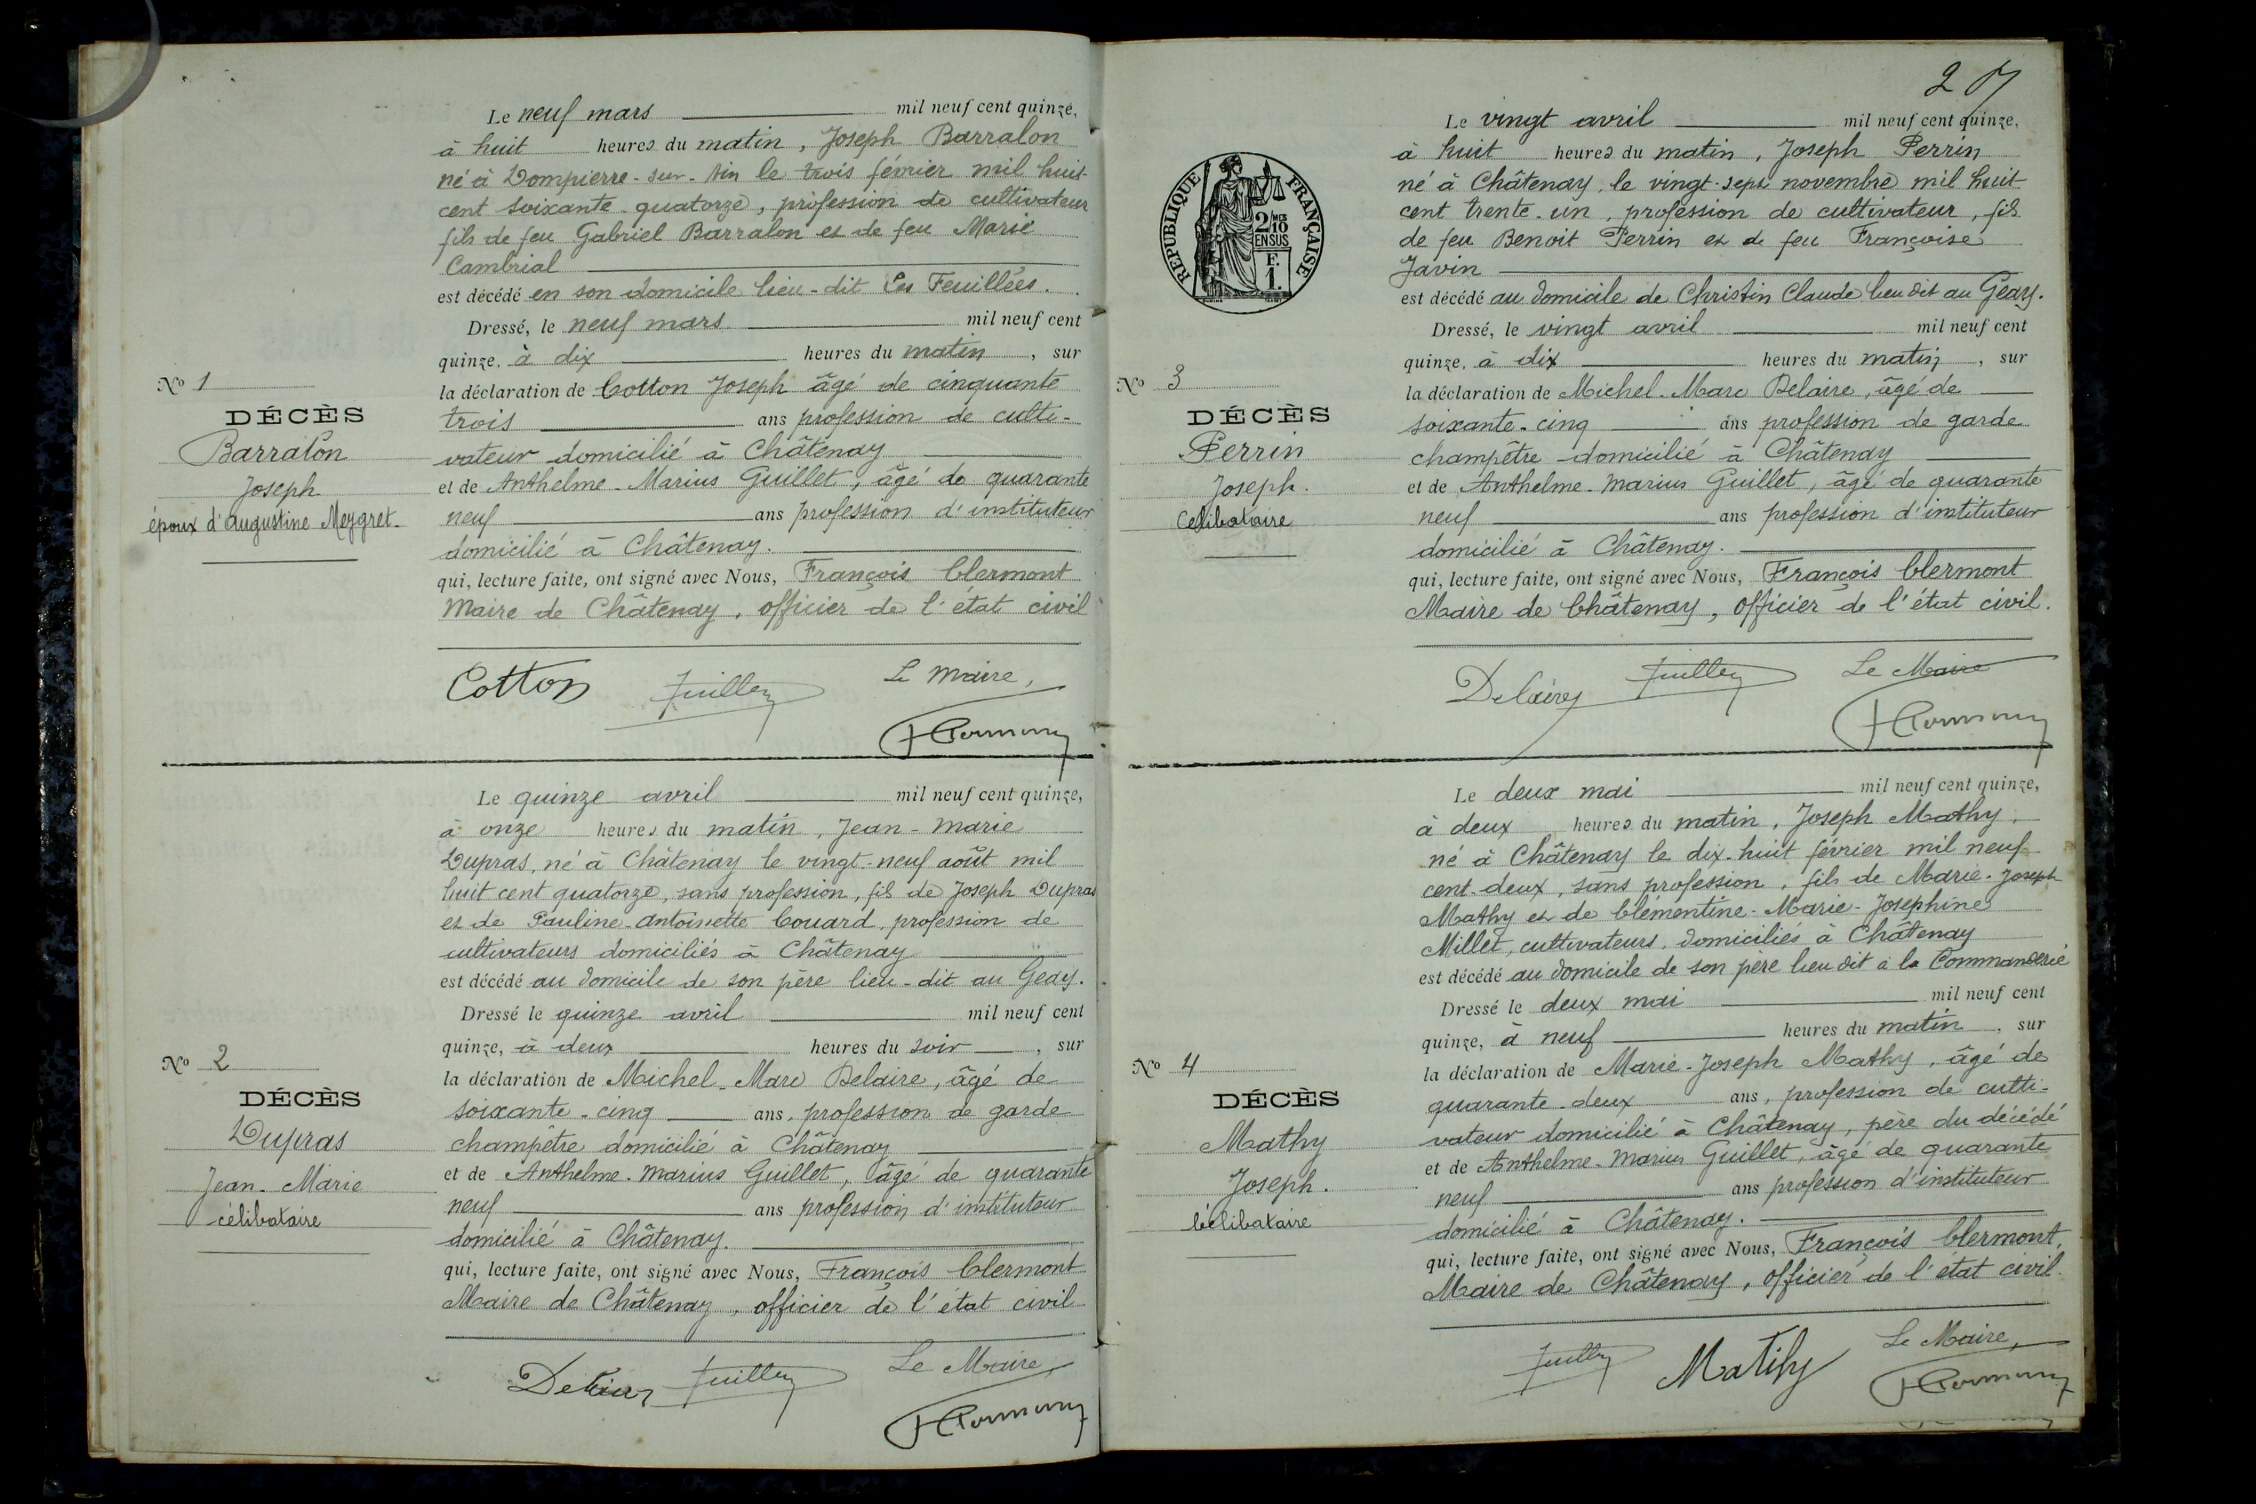 Le neuf mars mil neuf cent quinze,
à huit heures du matin, Joseph Barralon
né à Dompierre-sur-Ain le trois février mil huit
cent soixante-quatorze, profession de cultivateur
fils de feu Gabriel Barralon et de feu Marie
Cambrial
est décédé en son domicile lieu-dit Les Feuillées.
Dressé, le neuf mars mil neuf cent
quinze, à dix heures du matin, sur
la déclaration de Cotton Joseph âgé de cinquante
trois ans profession de culti-
vateur domicilié à Châtenay
et de Anthelme-Marius Guillet, âgé de quarante
neuf ans profession d'instituteur
domicilié à Châtenay.
qui, lecture faite, ont signé avec Nous, François Clermont
Maire de Châtenay, officier de l'état civil
No 1
DÉCÈS
Barralon
Joseph
époux d'Augustine Meygret.
Cotton Guillet Le Maire,
Le quinze avril mil neuf cent quinze,
à onze heures du matin, Jean-Marie
Dupras, né à Châtenay le vingt-neuf août mil
huit cent quatorze, sans profession, fils de Joseph Dupras
et de Pauline-Antoinette Couard, profession de
cultivateurs domiciliés à Châtenay
est décédé au domicile de son père lieu-dit au Geay.
Dressé le quinze avril mil neuf cent
quinze, à deux heures du soir, sur
la déclaration de Michel-Marc Delaire, âgé de
soixante-cinq ans, profession de garde
champêtre domicilié à Châtenay
et de Anthelme-Marius Guillet, âgé de quarante
neuf ans profession d'instituteur
domicilié à Châtenay.
qui, lecture faite, ont signé avec Nous, François Clermont
Maire de Châtenay, officier de l'état civil
No 2
DÉCÈS
Dupras
Jean-Marie
célibataire
Delaire Guillet Le Maire,
RÉPUBLIQUE FRANÇAISE
2/10
EN SUS
F.
1.
Le vingt avril mil neuf cent quinze,
à huit heures du matin, Joseph Perrin
né à Châtenay, le vingt-sept novembre mil huit
cent trente-un, profession de cultivateur, fils
de feu Benoit Perrin et de feu Françoise
Javin
est décédé au domicile de Christin Claude lieu dit au Geay.
Dressé, le vingt avril mil neuf cent
quinze, à dix heures du matin, sur
la déclaration de Michel-Marc Delaire, âgé de
soixante-cinq ans profession de garde
champêtre domicilié à Châtenay
et de Anthelme-Marius Guillet, âgé de quarante
neuf ans profession d'instituteur
domicilié à Châtenay.
qui, lecture faite, ont signé avec Nous, François Clermont
Maire de Châtenay, officier de l'état civil.
No 3
DÉCÈS
Perrin
Joseph.
Célibataire
Delaire Guillet Le Maire
Le deux mai mil neuf cent quinze,
à deux heures du matin, Joseph Mathy,
né à Châtenay le dix-huit février mil neuf
cent-deux, sans profession, fils de Marie-Joseph
Mathy et de Clémentine-Marie-Josephine
Millet, cultivateurs, domiciliés à Châtenay
est décédé au domicile de son père lieu dit à la Commanderie
Dressé le deux mai mil neuf cent
quinze, à neuf heures du matin, sur
la déclaration de Marie-Joseph Mathy, âgé de
quarante-deux ans, profession de culti-
vateur domicilié à Châtenay, père du décédé
et de Anthelme-Marius Guillet, âgé de quarante
neuf ans profession d'instituteur
domicilié à Châtenay.
qui, lecture faite, ont signé avec Nous, François Clermont,
Maire de Châtenay, officier de l'état civil.
No 4
DÉCÈS
Mathy
Joseph.
Célibataire
Guillet Mathy Le Maire,